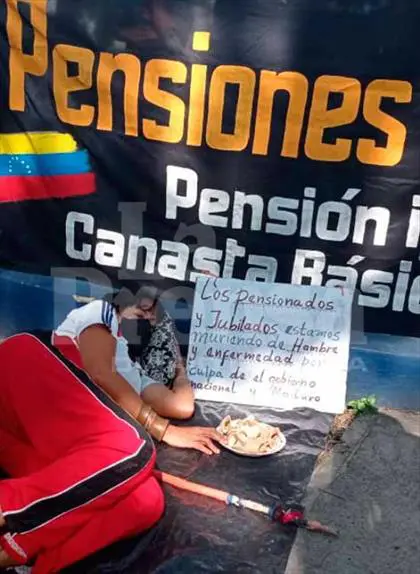 Pensiones
Pensión i
Canasta Básic
Los pensionados
y Jubilados estamos
muriendo de Hambre
y enfermedad por
culpa de el gobierno
nacional y Maduro